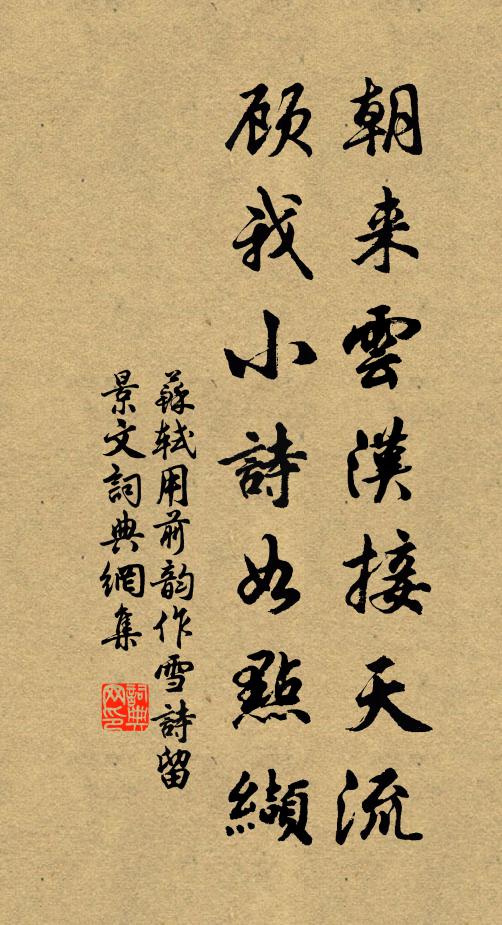 朝来雲漢接天流
顾我小詩如點纈
蘇軾用前韵作雪詩留
景文詞典網集
詞典网印